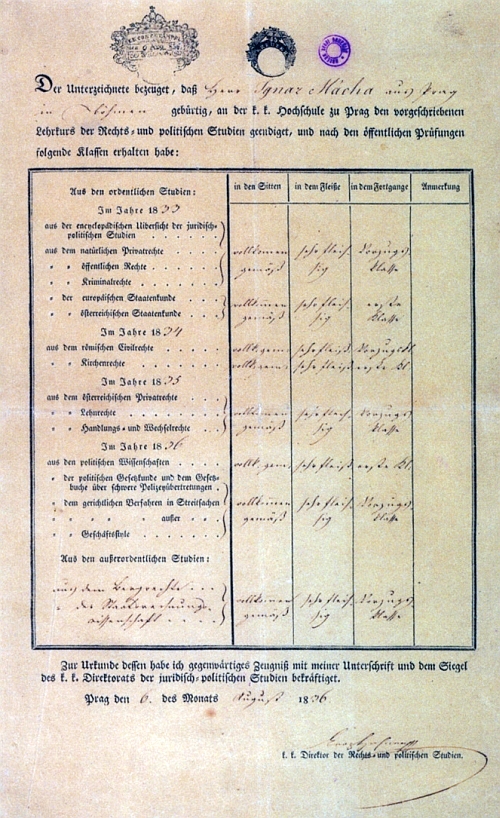 Der Unterzeichnete bezeuget, daß Herr Ignaz Mácha aus Prag
in Böhmen gebürtig, an der k. k. Hochschule zu Prag den vorgeschriebenen
Lehrkurs der Rechts- und politischen Studien geendiget, und nach den öffentlichen Prüfungen
folgende Klassen erhalten habe:
Aus den ordentlichen Studien: in den Sitten in dem Fleiße in dem Fortgange Anmerkung
Im Jahre 1833
aus der encyclopädischen Uibersicht der juridisch-
politischen Studien
aus dem natürlichen Privatrechte vollkommen sehr fleis- Vorzugs
" " öffentlichen Rechte gemäß sig Klasse
" " Kriminalrechte
" der europäischen Staatenkunde vollkommen sehr fleis- erste
" " österreichischen Staatenkunde gemäß sig Klasse
Im Jahre 1834
aus dem römischen Civilrechte vollk. gem. sehr fleisig Vorzugskl.
" " Kirchenrechte vollk. gem. sehr fleisig erste Kl.
Im Jahre 1835
aus dem österreichischen Privatrechte
" " Lehnrechte vollkommen sehr fleis- Vorzugs
" " Handlungs- und Wechselrechte gemäß sig Klasse
Im Jahre 1836
aus den politischen Wissenschaften vollk. gem. sehr fleisig erste Kl.
" der politischen Gesetzkunde und dem Gesetz-
buche über schwere Polizeyübertretungen
" dem gerichtlichen Verfahren in Streitsachen vollkommen sehr fleis- Vorzugs
" " " außer " gemäß sig Klasse
" " Geschäftsstyle
Aus den außerordentlichen Studien:
aus dem Bergrechte
" der Staatsrechnungs- vollkommen sehr fleis- Vorzugs
wissenschaft gemäß sig Klasse
Zur Urkunde dessen habe ich gegenwärtiges Zeugniß mit meiner Unterschrift und dem Siegel
des k. k. Direktorats der juridisch-politischen Studien bekräftiget.
Prag den 6. des Monats August 1836
k. k. Direktor der Rechts- und politischen Studien.